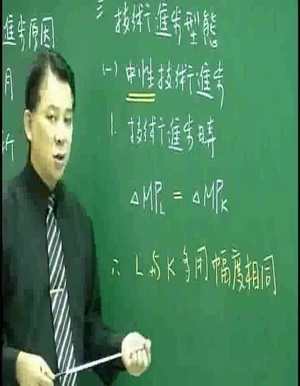 進步原因
月
析
三 技術進步型態
(一) 中性技術進步
1. 技術進步時
△MPL = △MPK
∴ L与K多用幅度相同